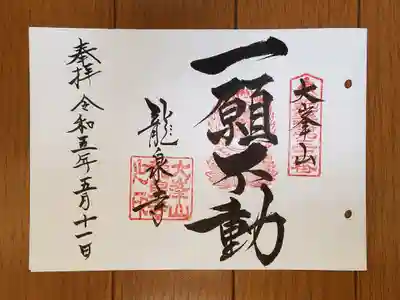 大峯山
一願不動
龍泉寺
奉拝 令和五年五月十一日